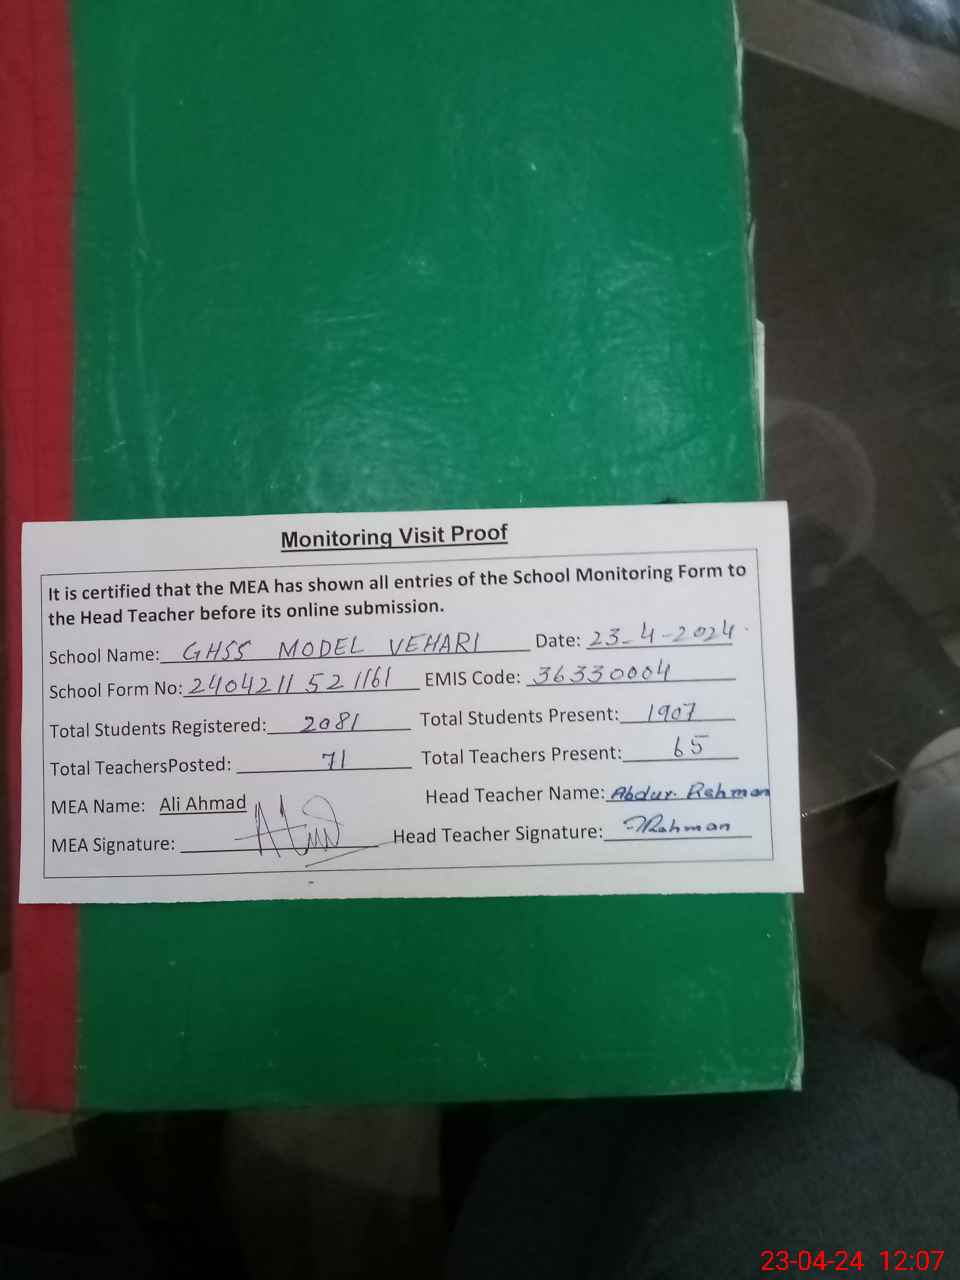 Monitoring Visit Proof
It is certified that the MEA has shown all entries of the School Monitoring Form to
the Head Teacher before its online submission.
School Name: GHSS MODEL VEHARI Date: 23-4-2024
School Form No: 2404211521161 EMIS Code: 36330004
Total Students Registered: 2081 Total Students Present: 1907
Total TeachersPosted: 71 Total Teachers Present: 65
MEA Name: Ali Ahmad Head Teacher Name: Abdur Rahman
MEA Signature: Head Teacher Signature: Rahman
23-04-24 12:07